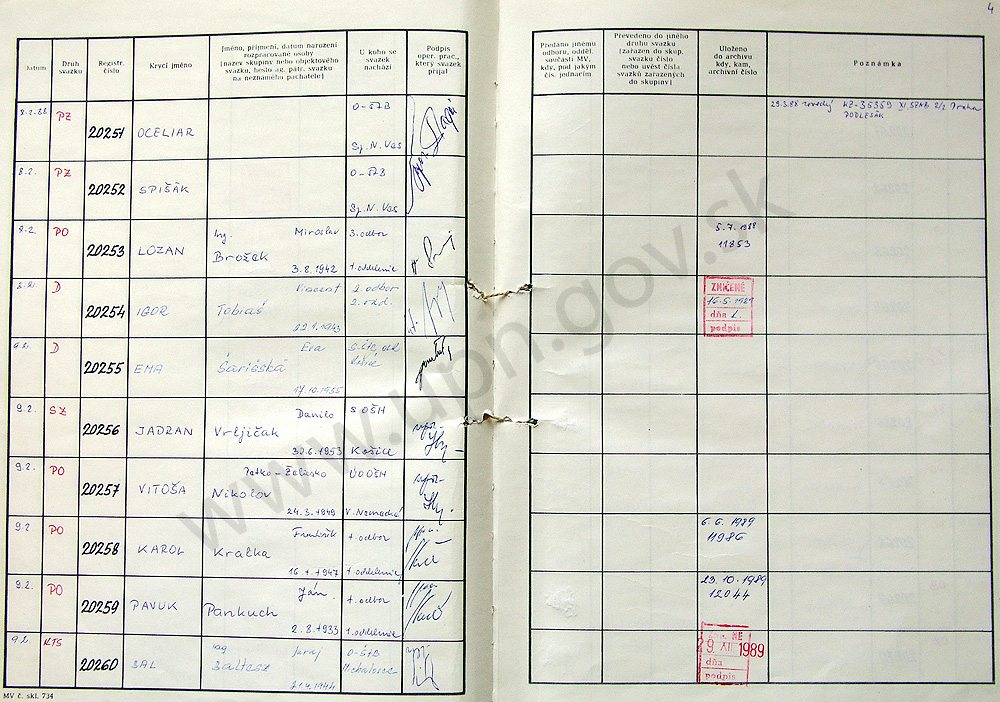 4
Datum
Druh svazku
Registr. číslo
Krycí jméno
Jméno, příjmení, datum narození
rozpracované osoby
[název skupiny nebo objektového
svazku, heslo ag. pátr. svazku
na neznámého pachatele]
U koho se
svazek
nachází
Podpis
oper. prac.,
který svazek
přijal
Předáno jinému
odboru, odděl.
součásti MV,
kdy, pod jakým
čís. jednacím
Převedeno do jiného
druhu svazku
[zařazen do skup.
svazku číslo
nebo uvést čísla
svazků zařazených
do skupiny]
Uloženo
do archivu
kdy, kam,
archivní číslo
Poznámka
8.2.88 PZ 20251 OCELIAR O-ŠTB
Sp. N. Ves
XI SNB 2/2 Praha
PODLESÁK
8.2. PZ 20252 SPIŠÁK O-ŠTB
Sp. N. Ves
8.2. PO 20253 LOZAN Ing. Miroslav 3. odbor
Brožek
3.8.1942 1. oddelenie
5.7.1988
11853
8.2. D 20254 IGOR Vincent 2. odbor
Tobiaš 2. rád.
22.1.1943
ZNIČENÉ
16.5.1989
dňa
podpis
9.2. D 20255 EMA Eva
Šarišská
17.10.1955
9.2. SZ 20256 JADRAN Danilo SOŠH
Vrljičak
30.6.1953 Košice
9.2. PO 20257 VITOŠA Želiasko ÚO OŠH
Nikolov
24.3.1949 V. Nemecká
9.2 PO 20258 KAROL František 1. odbor
Kralka
16.1.1947 1. oddelenie
6.6.1989
11986
9.2. PO 20259 PAVUK Ján 1. odbor
Pankuch
2.8.1933 1. oddelenie
23.10.1989
12044
9.2. KTS 20260 BAL Ing. Juraj O-ŠTB
Baltesz Michalovce
7.1.1944
9 XII 1989
dňa
podpis
MV č. skl. 734
www.upn.gov.sk